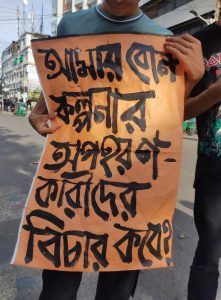 আমার বোন
কল্পনার
অপহরণ-
কারীদের
বিচার কবে?